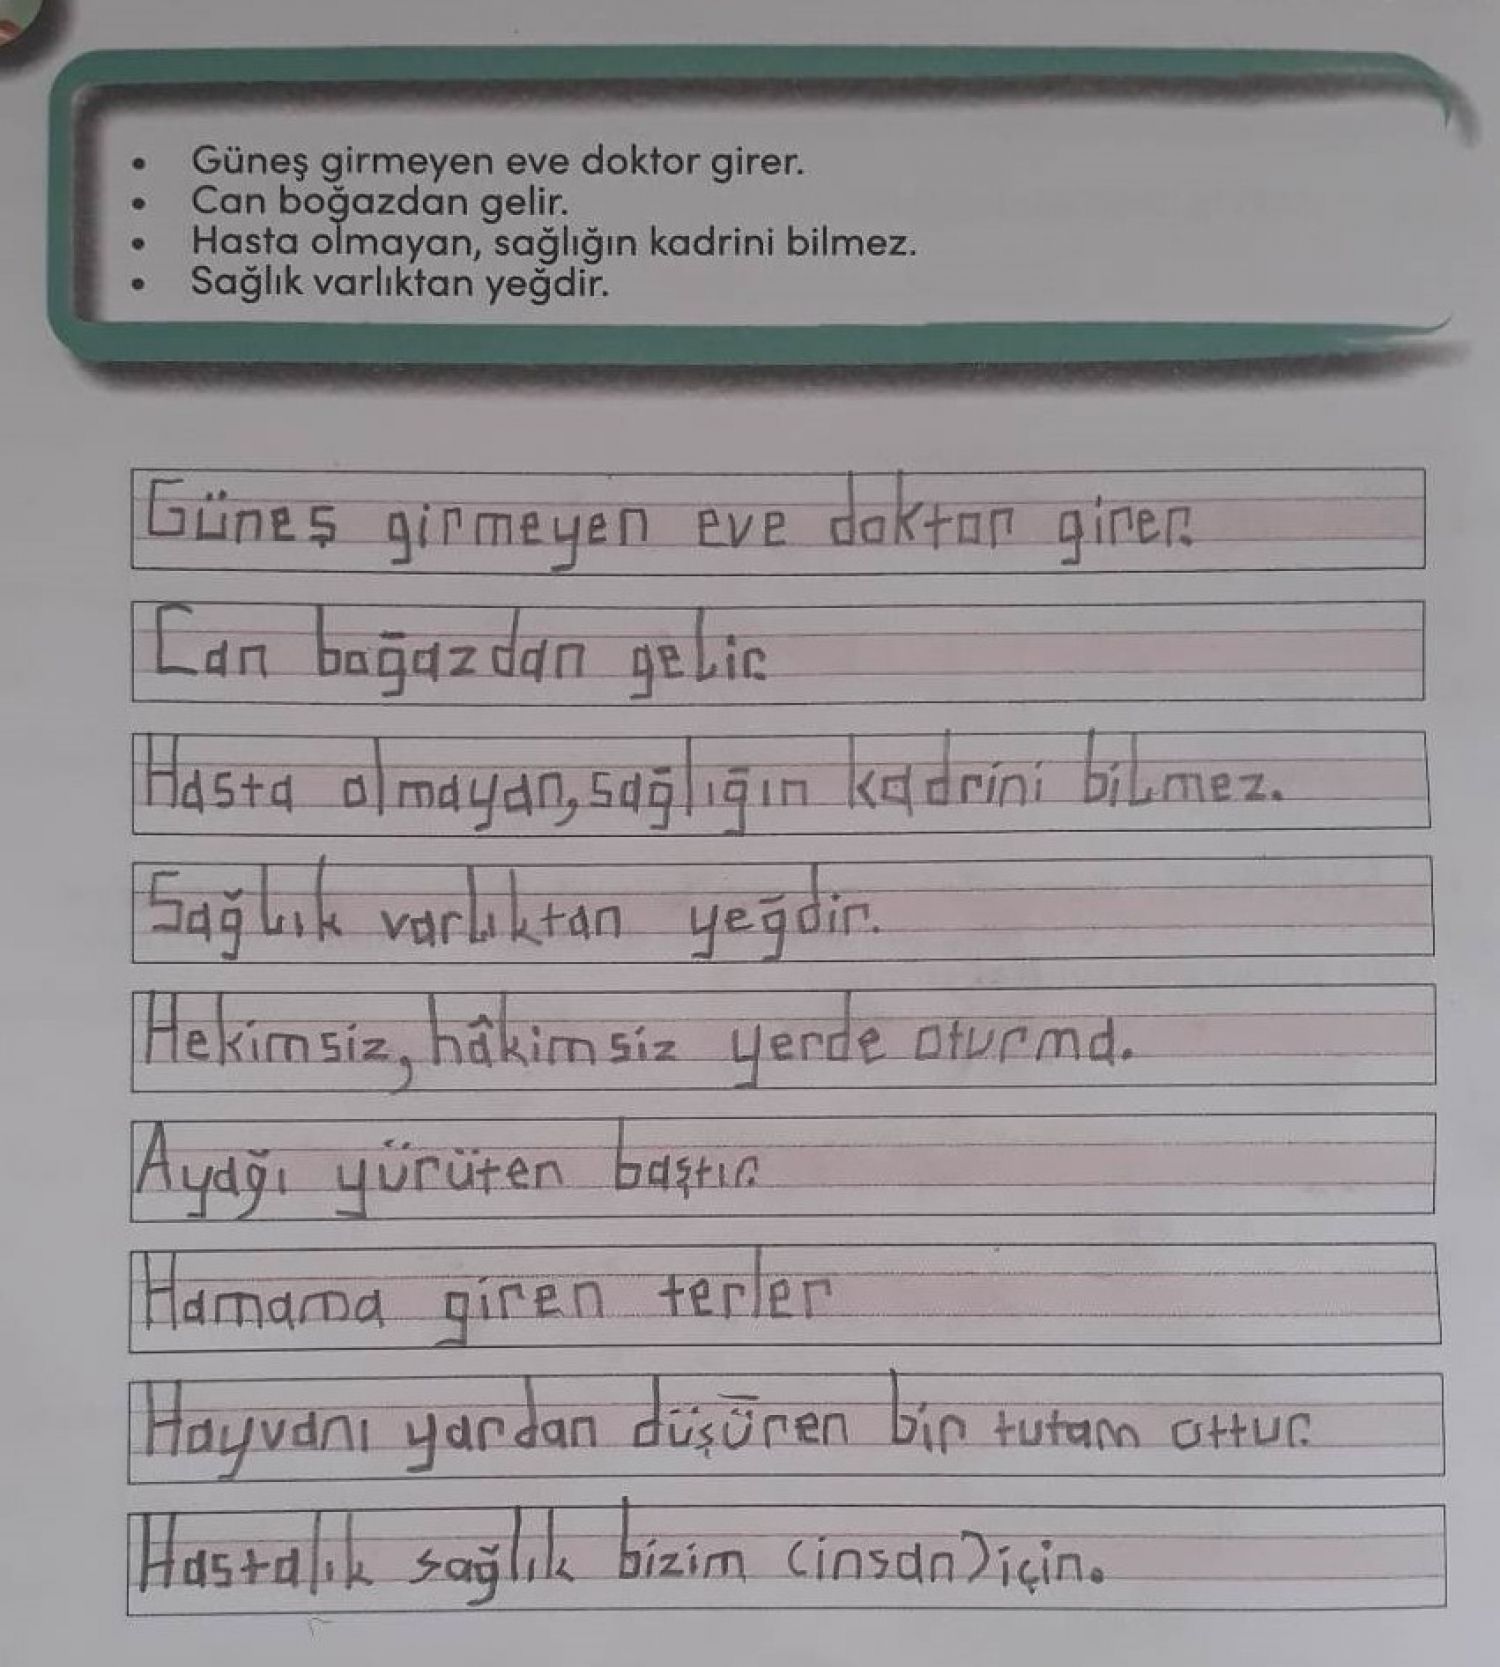 • Güneş girmeyen eve doktor girer.
• Can boğazdan gelir.
• Hasta olmayan, sağlığın kadrini bilmez.
• Sağlık varlıktan yeğdir.
Güneş girmeyen eve doktor girer.
Can boğazdan gelir.
Hasta olmayan, sağlığın kadrini bilmez.
Sağlık varlıktan yeğdir.
Hekimsiz, hâkimsiz yerde oturma.
Ayağı yürüten baştır.
Hamama giren terler
Hayvanı yardan düşüren bir tutam ottur.
Hastalık sağlık bizim (insan) için.